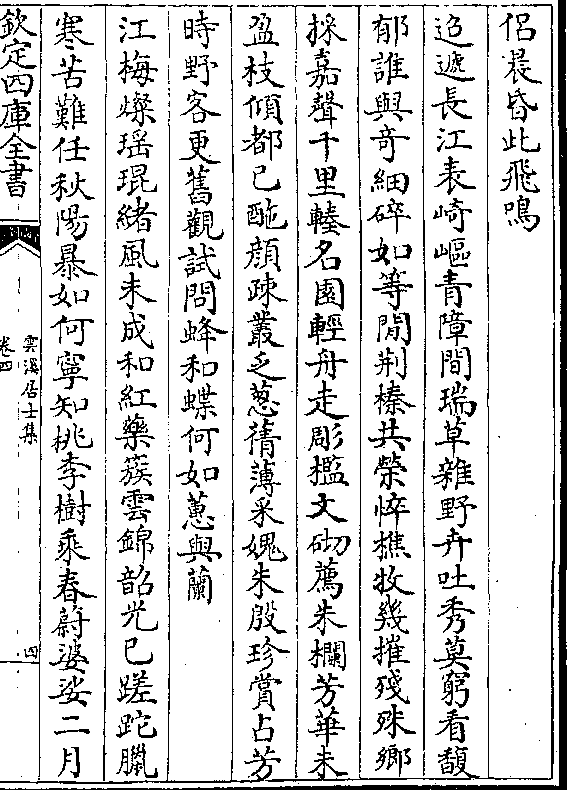 侣晨昏此飛鳴
迢遞長江表崎嶇青障間瑞草雜野卉吐秀莫窮看馥
郁誰與竒細碎如等閒荆榛共榮悴樵牧幾摧殘殊鄉
採嘉聲千里轃名園輕舟走彫檻文砌薦朱欄芳華未
盈枝傾都已酡顔疎叢乏葱蒨薄采媿朱殷珍賞占芳
時野客更舊觀試問蜂和蝶何如蕙與蘭
江梅爍瑶琨緒風未成和紅藥蔟雲錦韶光已蹉跎臘
寒苦難任秋陽暴如何寧知桃李樹乘春蔚婆娑二月
欽定四庫全書
雲溪居士集
卷四
四